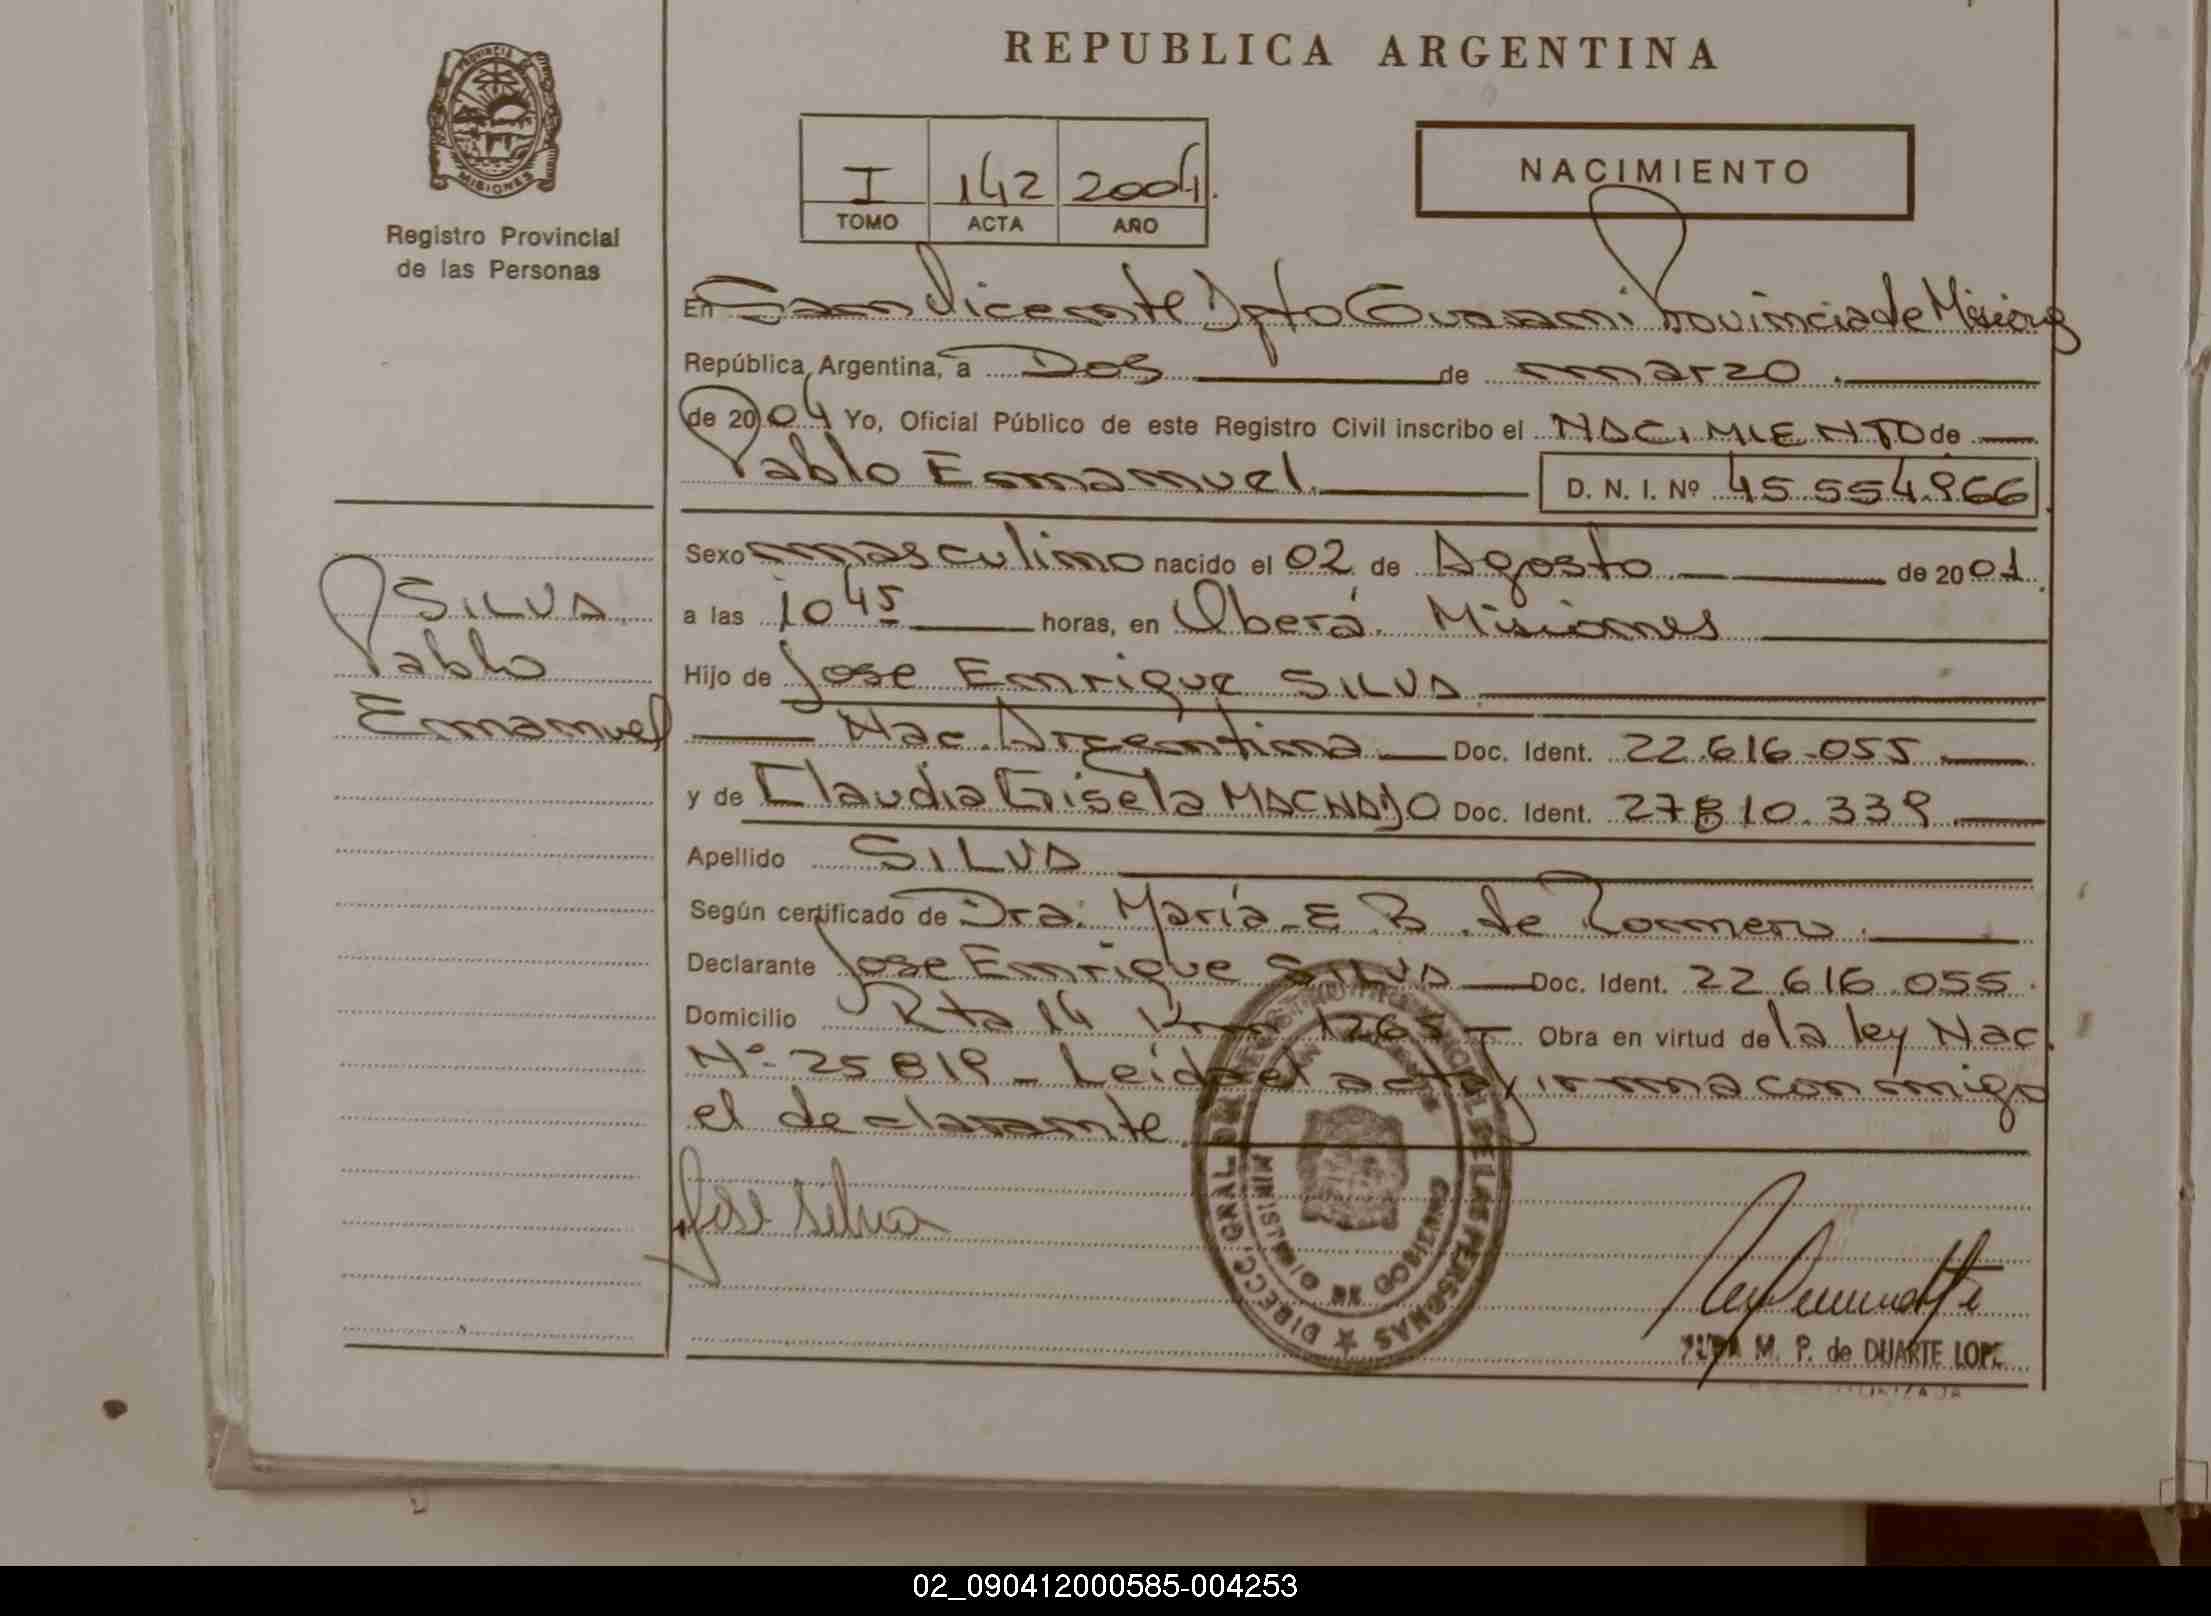 REPUBLICA ARGENTINA
PROVINCIA DE MISIONES
Registro Provincial
de las Personas
I 142 2004.
TOMO ACTA AÑO
NACIMIENTO
En San Vicente Dpto Guarani Provincia de Misiones
República Argentina, a Dos de marzo
de 2004 Yo, Oficial Público de este Registro Civil inscribo el NACIMIENTO de
Pablo Emanuel D. N. I. Nº 45.554.966
Sexo masculino nacido el 02 de Agosto de 2001.
a las 10 45 horas, en Oberá Misiones
Hijo de Jose Enrique SILVA
Nac. Argentina Doc. Ident. 22.616.055
y de Claudia Gisela Doc. Ident. 27810.339
Apellido SILVA
Según certificado de Dra. María E. B. de
Declarante Jose Enrique SILVA Doc. Ident. 22.616.055.
Domicilio Rta 14 Km 1265 Obra en virtud de la ley Nac.
Nº 25819 - Leida el acta firma con migo
el declarante.
SILVA
Pablo
Emanuel
Jose Silva
DIRECC. GRAL. DEL REGISTRO PROVINCIAL DE LAS PERSONAS
MINISTERIO DE GOBIERNO
M. P. de DUARTE LOPE
02_090412000585-004253